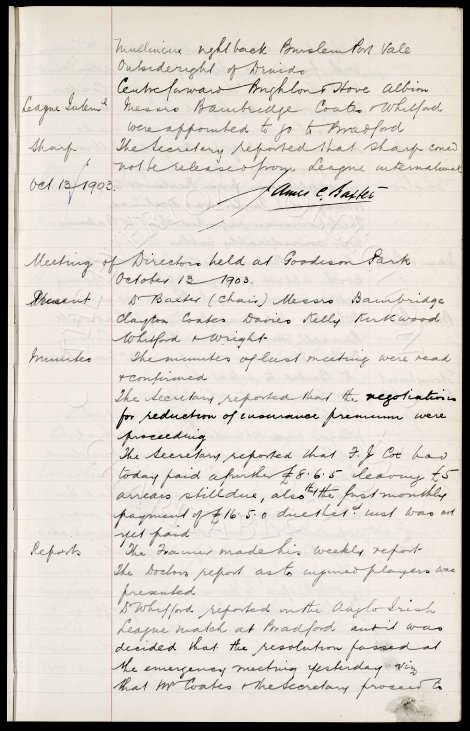 Mullineux right back Burslem Port Vale
Outside right of Druids
Centre forward Brighton & Hove Albion
League Intern'l Messrs Bainbridge Coates & Whitford
were appointed to go to Bradford
Sharp The Secretary reported that Sharp could
not be released from League international
Oct 13/1903 James C. Baxter
Meeting of Directors held at Goodison Park
October 13 1903.
Present Dr Baxter (Chair) Messrs Bainbridge
Clayton Coates Davies Kelly Kirkwood
Whitford & Wright
Minutes The minutes of last meeting were read
& confirmed
The Secretary reported that the negotiations
for reduction of insurance premium were
proceeding
The Secretary reported that F. J Cox had
today paid a further £8.6.5 leaving £5
arrears still due, also that the first monthly
payment of £16.5.0 due this inst was not
yet paid
Reports The Trainer made his weekly report
The Doctors report as to injured players was
presented
Dr Whitford reported on the Anglo Irish
League match at Bradford and it was
decided that the resolution passed at
the emergency meeting yesterday viz
that Mr Coates & the Secretary proceed to